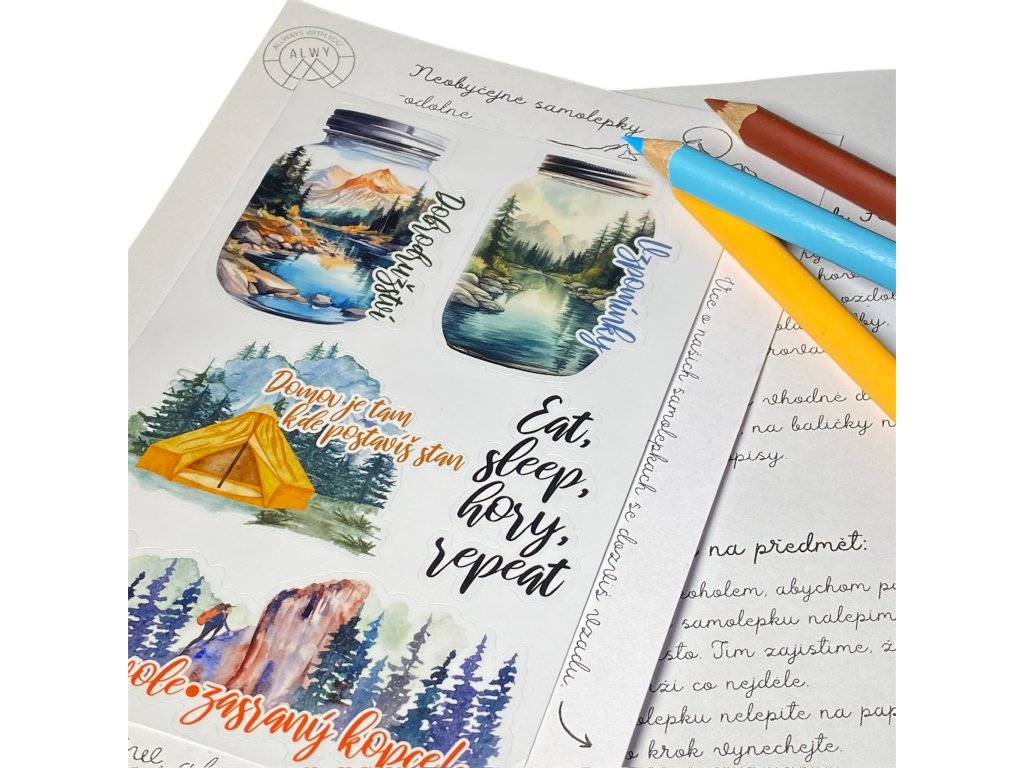 ALLWAYS WITH YOU
ALWY
Neobyčejné samolepky
-odolné
Dobrodružství
Vzpomínky
Domov je tam
kde postavíš stan
Eat,
sleep,
hory,
repeat
zasraný kopce!
Více o našich samolepkách se dozvíš vzadu.
vhodné
na baličky
na předmět:
abychom
samolepku nalepím
Tím zajistíme,
co nejdéle.
nelepíte na
krok vynechejte.